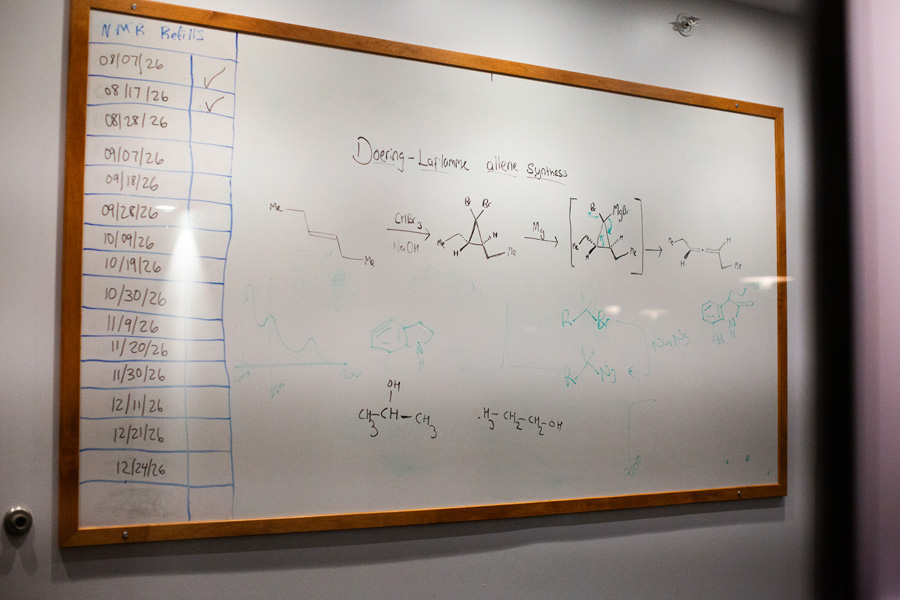 NMR Refills
08/07/26 ✓
08/17/26 ✓
08/28/26
09/07/26
09/18/26
09/28/26
10/09/26
10/19/26
10/30/26
11/9/26
11/20/26
11/30/26
12/11/26
12/21/26
12/24/26
Doering-Laflamme allene synthesis
Me
Me
CHBr3
NaOH
Br Br
Me H
H Me
Mg
Br MgBr
Me H
H Me
H
H Me
R Br
R N3
NaN3
N
H
OH
CH3-CH-CH3
H3-CH2-CH2-OH